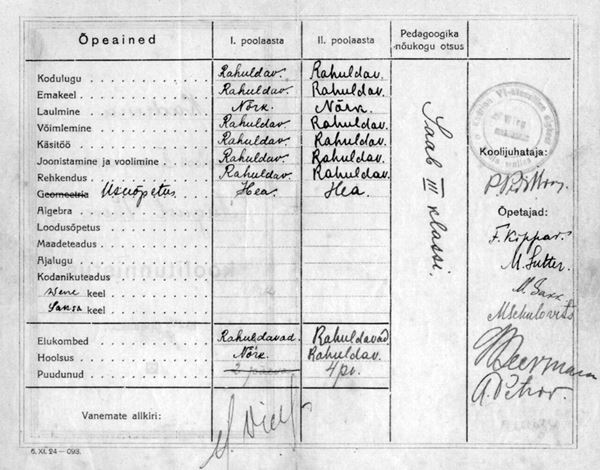 Õpeained I. poolaasta II. poolaasta Pedagoogika nõukogu otsus
Kodulugu Rahuldav. Rahuldav.
Emakeel Rahuldav. Rahuldav.
Laulmine Nõrk. Nõrk.
Võimlemine Rahuldav. Rahuldav.
Käsitöö Rahuldav. Rahuldav.
Joonistamine ja voolimine Rahuldav. Rahuldav.
Rehkendus Rahuldav. Rahuldav.
Geomeetria Usuõpetus Hea. Hea.
Algebra
Loodusõpetus
Maadeteadus
Ajalugu
Kodanikuteadus
Wene keel
Saksa keel
Elukombed Rahuldavad. Rahuldavad.
Hoolsus Nõrk. Rahuldav.
Puudunud 2 päeva 4 pv.
Vanemate allkiri:
6. XI. 24 — 093.
Saab III klassi.
Koolijuhataja:
Õpetajad:
F. Kippar.
M. Sutter.
A. Petrov.